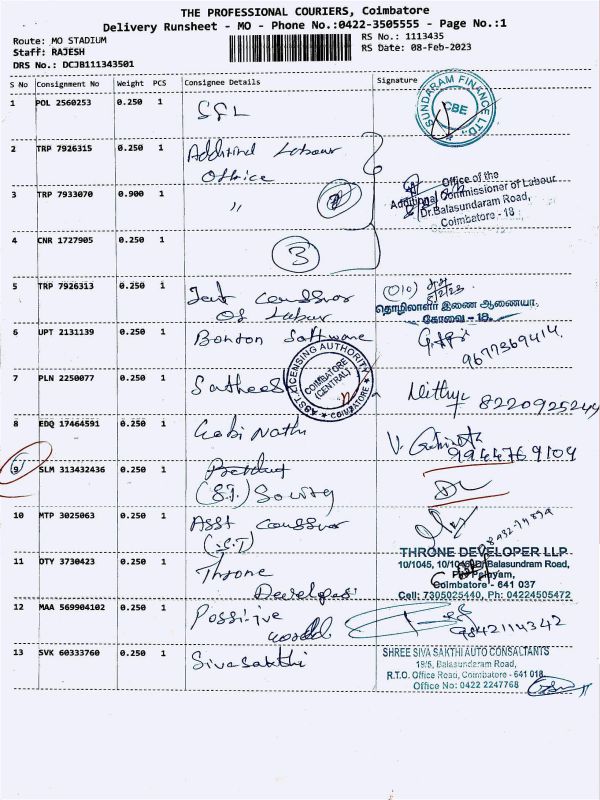 THE PROFESSIONAL COURIERS, Coimbatore
Delivery Runsheet - MO - Phone No.:0422-3505555 - Page No.:1
Route: MO STADIUM
Staff: RAJESH
DRS No.: DCJB111343501
RS No.: 1113435
RS Date: 08-Feb-2023
S No Consignment No Weight PCS Consignee Details Signature
1 POL 2560253 0.250 1 SFL
SUNDARAM FINANCE LTD. CBE
2 TRP 7926315 0.250 1 Labour
Office
3 TRP 7933070 0.900 1 "
Office of the
Additional Commissioner of Labour
Dr.Balasundaram Road,
Coimbatore - 18
4 CNR 1727905 0.250 1 3
5 TRP 7926313 0.250 1
Of Labour
தொழிலாளர் இணை ஆணையர்
கோவை - 18.
6 UPT 2131139 0.250 1 Bonton Software
9677369414
7 PLN 2250077 0.250 1 Sathees
ASST LICENSING AUTHORITY COIMBATORE (CENTRAL) COIMBATORE
Nithya 8220925244
8 EDQ 17464591 0.250 1 Gobi Nath
9944769109
9 SLM 313432436 0.250 1
(S.T) Sowry
10 MTP 3025063 0.250 1 Asst
(S.T)
11 DTY 3730423 0.250 1 Throne
Developers
THRONE DEVELOPER LLP
10/1045, Dr.Balasundaram Road,
Coimbatore - 641 037
Cell: 7305025440, Ph: 04224505472
12 MAA 569904102 0.250 1 Possitive
world
9842114342
13 SVK 60333760 0.250 1 Sivasakthi
SHREE SIVA SAKTHI AUTO CONSULTANTS
19/5, Balasundaram Road,
R.T.O. Office Road, Coimbatore - 641 018.
Office No: 0422 2247768